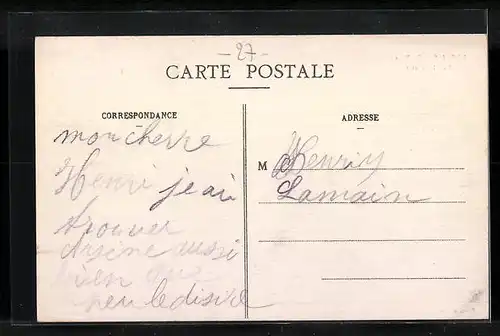 27
CARTE POSTALE
CORRESPONDANCE
ADRESSE
mon cherre
Henri jeai
trouver
Arsène aussi
bien que
peu ledisire
M Henriy
Lamain